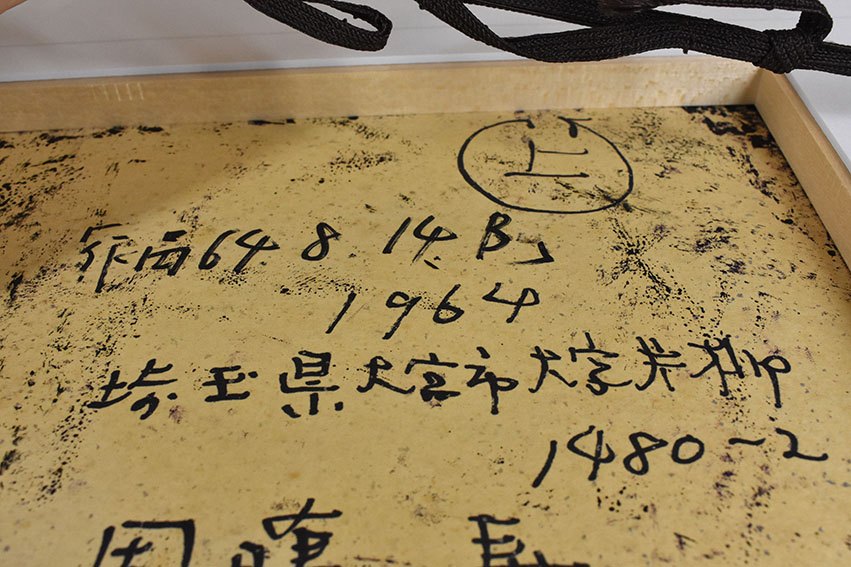 上
作品64 8. 14. B」
1964
埼玉県大宮市大字片柳
1480-2